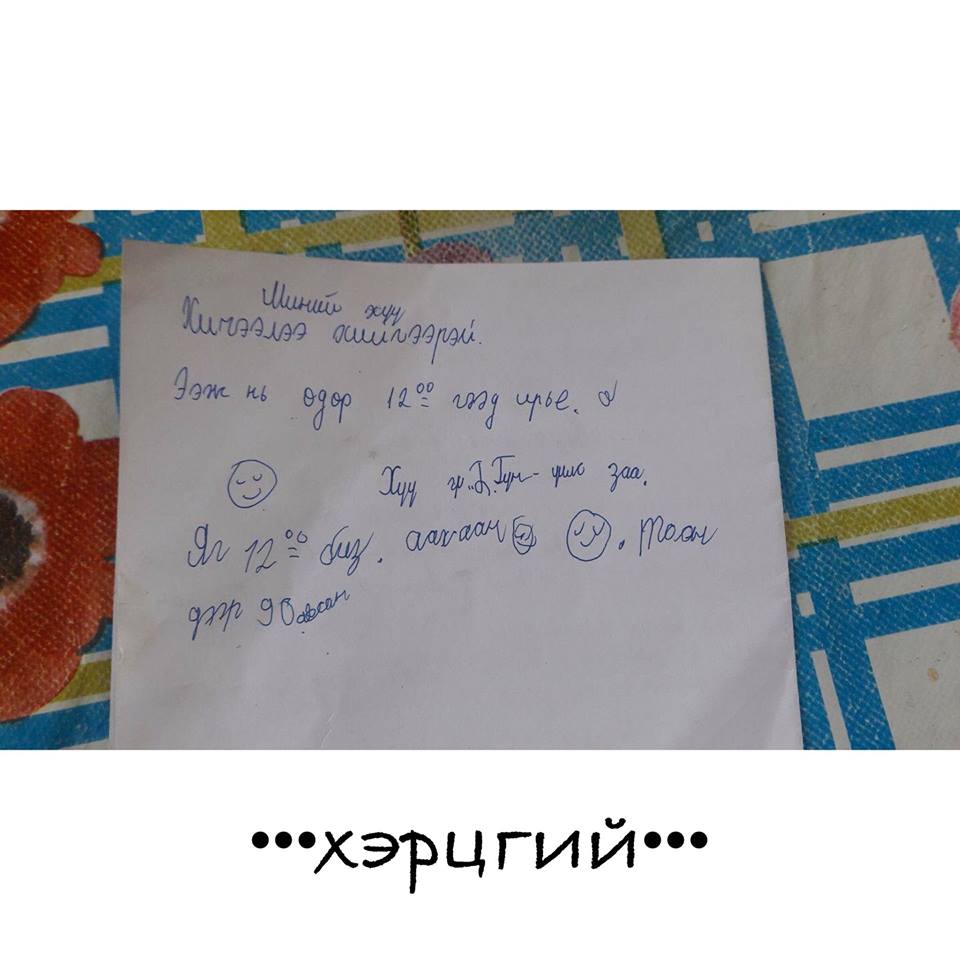 Миний хүү
Хичээлээ хийгээрэй.
Ээж нь өдөр 12⁰⁰ гээд ирье.
Хүү заа.
Яг 12⁰⁰ биз. аахаан . тоон
дээр 90 авсан
•••хэрцгий•••